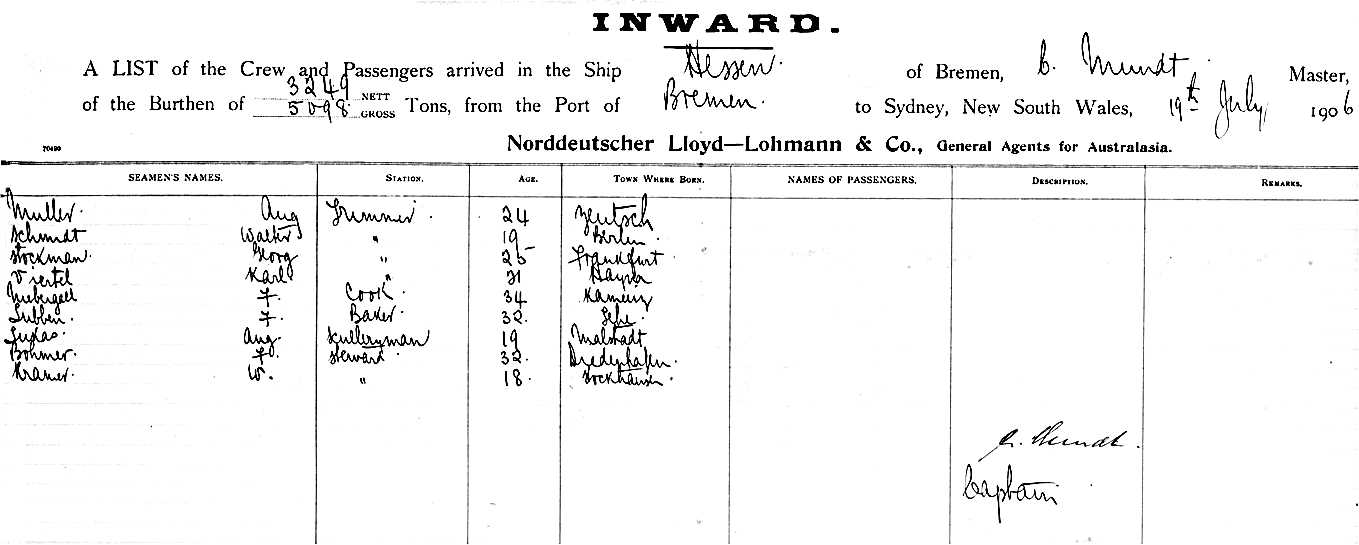 INWARD.
A LIST of the Crew and Passengers arrived in the Ship Hessen. of Bremen, C. Mundt, Master,
of the Burthen of 3249 NETT 5098 GROSS Tons, from the Port of Bremen. to Sydney, New South Wales, 19th July, 1906
70490 Norddeutscher Lloyd—Lohmann & Co., General Agents for Australasia.
SEAMEN'S NAMES. STATION. AGE. TOWN WHERE BORN. NAMES OF PASSENGERS. DESCRIPTION. REMARKS.
Muller. Aug Trimmer. 24 Zeutsch
Schmidt Walter " 19 Berlin
Stockman. Georg " 25 Frankfurt
Viertel Karl " 21
F. Cook. 34 Kamenz
Lubben. F. Baker. 32. Lehe.
Aug. Sculleryman 19 Malstadt
Bohmer. Fd. Steward. 32.
Kramer. W. " 18. Stockhausen.
C. Mundt.
Captain